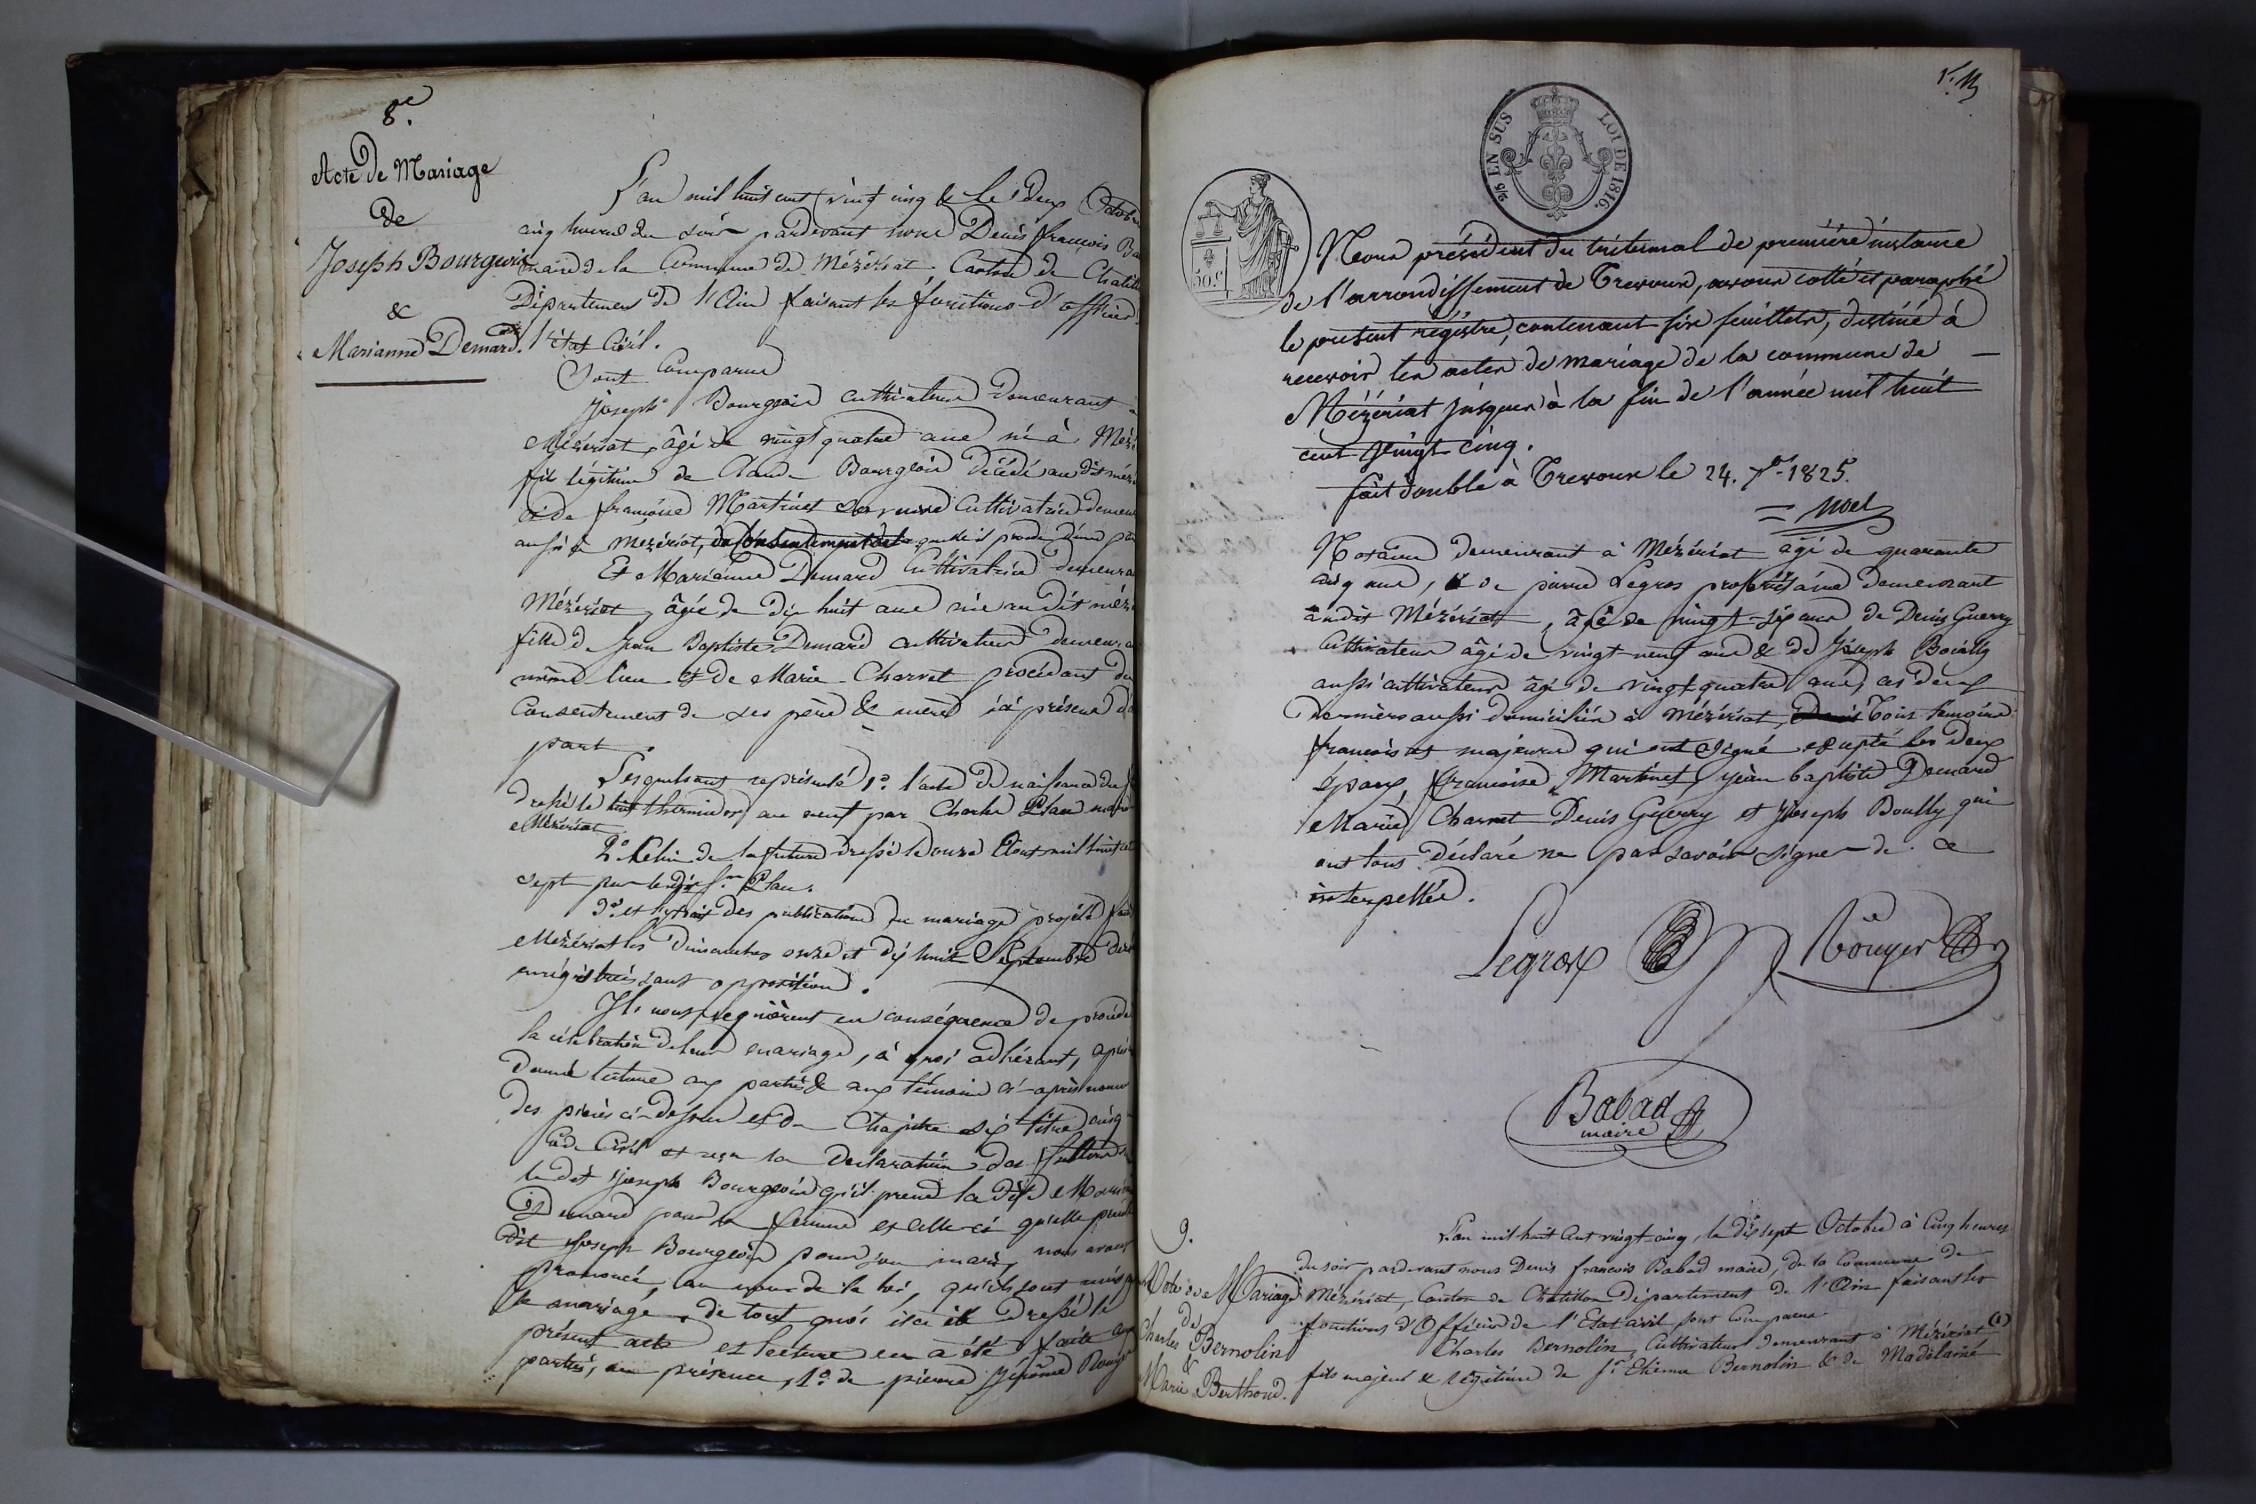 8.e
Acte de Mariage
de
Joseph Bourgeois
&
Marianne Demard.
L'an mil huit cent vingt cinq & le deux Octobre
cinq heures du soir pardevant nous Denis françois Ba
maire de la Commune de Mézériat, Canton de Chatill
Département de l'Ain faisant les fonctions d'officier
l'état Civil.
Sont Comparus
Joseph Bourgeois cultivateur Demeurant à
Mézériat, âgé de vingt quatre ans né à Mézé
fils légitime de Claude Bourgeois décédé au dit mézé
et de françoise Martinet sa veuve Cultivatrice demeur
aussi à Mézériat, du Consentement de laquelle il procède d'une par
Et Marianne Demard Cultivatrice demeura
Mézériat, âgée de dix huit ans née au dit mézé
fille de Jean Baptiste Demard cultivateur demeura
même lieu et de Marie Charvet procédant du
Consentement de ses père & mère ici présens d'a
part.
Lesquels ont représenté 1.o l'acte de naissance du
dressé le huit thermidor an neuf par Charles Plan maire
Mézériat
2.o Celui de la future dressé le douze Aout mil huit cent
sept par le dit S.r Plan.
3.o et extrait des publications du mariage projeté fait
Mézériat les Dimanches onze et dix huit Septembre der
enrégistrées sans opposition.
Ils nous requièrent en conséquence de procéde
la célébration de leur mariage, à quoi adhérant, après
donné lecture aux parties & aux témoins ci-après nommés
des pièces ci-dessus et du Chapitre six titre cinq
Code Civil et reçu la Déclaration des futurs
le dit Joseph Bourgeois qu'il prend la dite Marianne
Demard pour sa femme et celle-ci qu'elle prend
dit Joseph Bourgeois pour son mari, nous avons
prononcé, au nom de la loi, qu'ils sont unis
le mariage. de tout quoi il a été dressé le
présent acte et lecture en a été faite aux
parties, en présence, 1.o de pierre Jérôme Rouyer
2/5 EN SUS LOI DE 1816.
50.C
Nous président du tribunal de première instance
de l'arrondissement de Trevoux, avons cotté et paraphé
le présent régistre, contenant six feuillets, destiné à
recevoir les actes de mariage de la commune de
Mézériat jusques à la fin de l'année mil huit
cent vingt cinq.
fait double à Trevoux le 24. 7.bre 1825.
Noel
Notaire demeurant à Mézériat âgé de quarante
cinq ans, & de pierre Legros propriétaire demeurant
audit Mézériat, âgé de vingt-six ans, de Denis Guerry
Cultivateur âgé de vingt-neuf ans & de Joseph Boully
aussi cultivateur âgé de vingt-quatre ans, ces deux
derniers aussi domiciliés à Mézériat, Tous témoins
françois et majeurs qui ont signé excepté les deux
époux, françoise Martinet, jean baptiste Demard
Marie Charvet Denis Guerry et Joseph Boully qui
ont tous déclaré ne pas savoir signer de ce
interpellés.
Legros Rouyer
Babad
maire
9.
Acte de Mariage
de
Charles Bernolin
&
Marie Berthoud.
L'an mil huit cent vingt-cinq, le dix sept Octobre à Cinq heures
du soir pardevant nous Denis francois Babad maire, de la Commune de
Mézériat, Canton de Chatillon département de l'Ain faisant les
fonctions d'Officier de l'Etat civil sont Comparus
Charles Bernolin, Cultivateur demeurant à Mézériat (1)
fils majeur & légitime de S.r Etienne Bernolin & de Madelaine